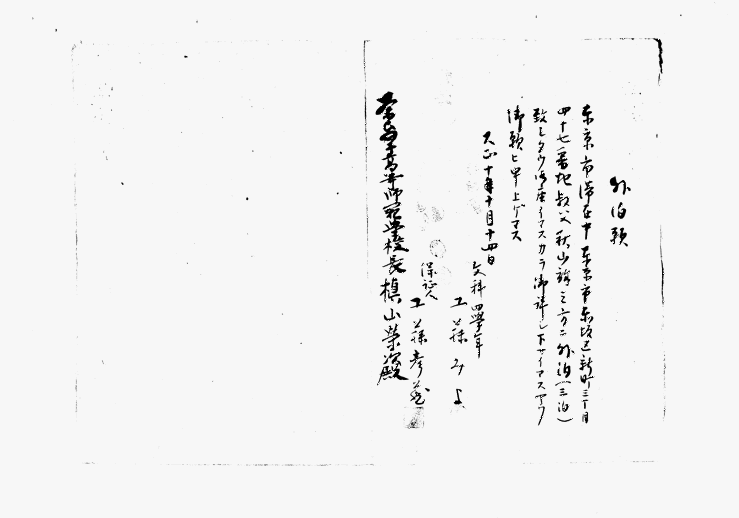 外泊願
東京市滞在中東京市赤坂区新町三丁目
四十七番地叔父秋山 之方ニ外泊(三泊)
致シタウ御座イマスカラ御許シ下サイマスヤウ
御願ヒ申上ゲマス
大正十年十月十四日
文科四学年
工藤みよ
保証人
工藤彦
奈良女高等師範学校長槙山榮次殿